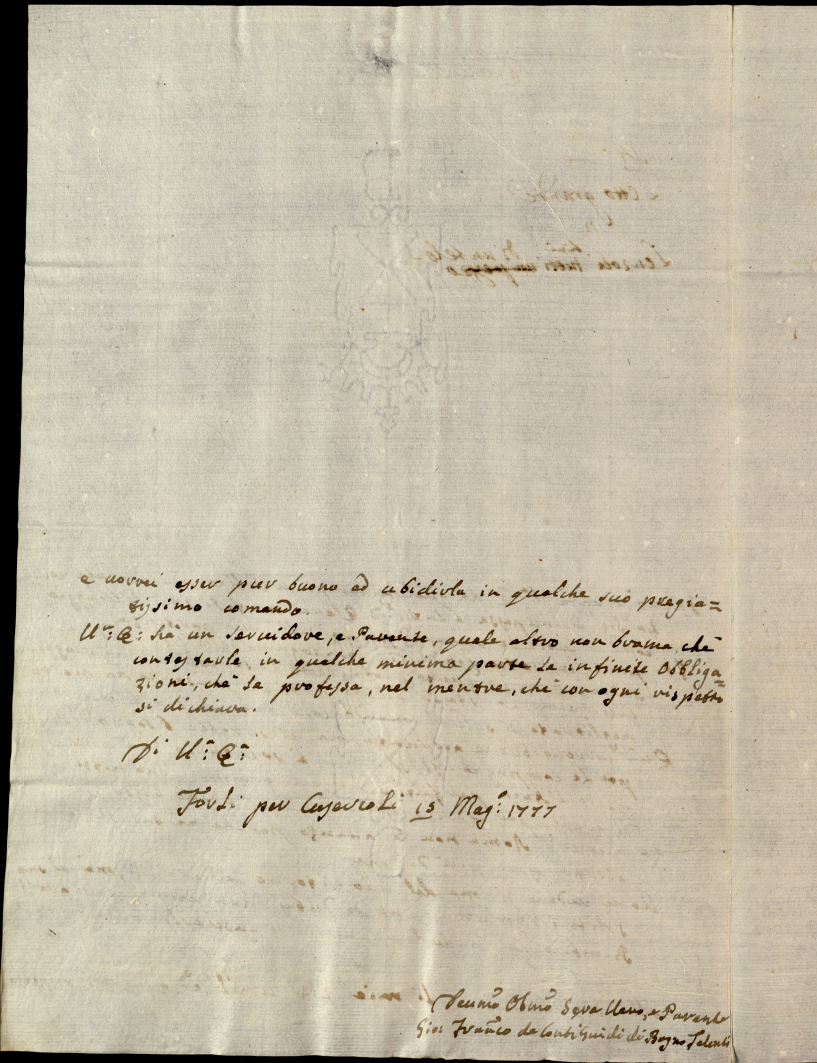 e vorrei esser pur buono ad ubidirla in qualche suo pregia=
tissimo comando.
V:ª E: hà un servidore, e Parente, quale altro non brama, chè
contestarle in qualche minima parte le infinite Obbliga=
zioni, chè le professa, nel mentre, chè con ogni rispetto
si dichiara.
Di V:ª E:ª
Forlì per Cusercoli 15 Magº 1777
Devmo Obmo Serv Vero, e Parente
Gio: Franco de Conti Guidi di Bagno